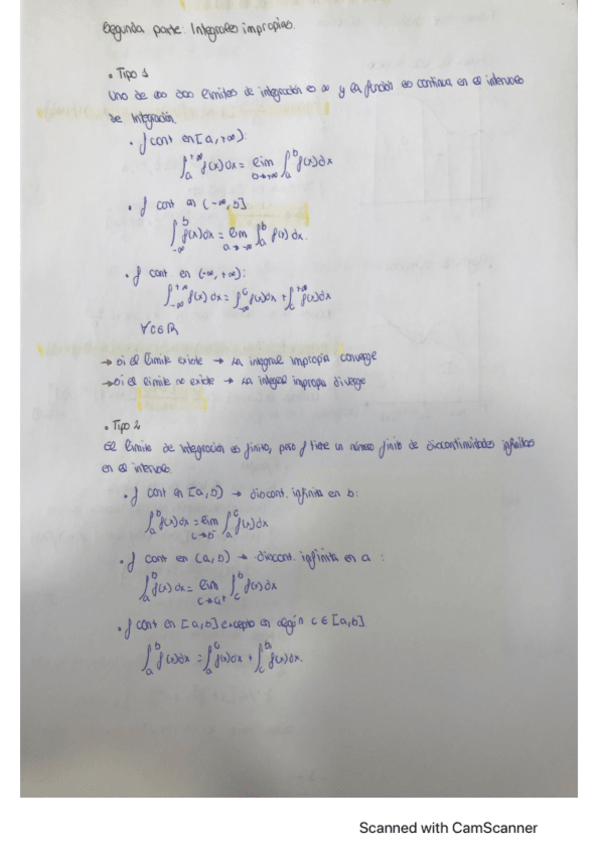 Segunda parte: Integrales impropias.
• Tipo 1
Uno de los dos límites de integración es ∞ y la función es continua en el intervalo
de integración
• f cont en [a, +∞):
∫_a^{+∞} f(x)dx = lim_{b→+∞} ∫_a^b f(x)dx
• f cont en (-∞, b]
∫_{-∞}^b f(x)dx = lim_{a→-∞} ∫_a^b f(x)dx.
• f cont. en (-∞, +∞):
∫_{-∞}^{+∞} f(x)dx = ∫_{-∞}^c f(x)dx + ∫_c^{+∞} f(x)dx
∀c∈ℝ
→ si el límite existe → la integral impropia converge
→ si el límite no existe → la integral impropia diverge
• Tipo 2
El límite de integración es finito, pero f tiene un número finito de discontinuidades infinitas
en el intervalo.
• f cont en [a, b) → discont. infinita en b:
∫_a^b f(x)dx = lim_{c→b⁻} ∫_a^c f(x)dx
• f cont en (a, b) → discont. infinita en a :
∫_a^b f(x)dx = lim_{c→a⁺} ∫_c^b f(x)dx
• f cont en [a, b] excepto en algún c ∈ [a, b]
∫_a^b f(x)dx = ∫_a^c f(x)dx + ∫_c^b f(x)dx.
Scanned with CamScanner